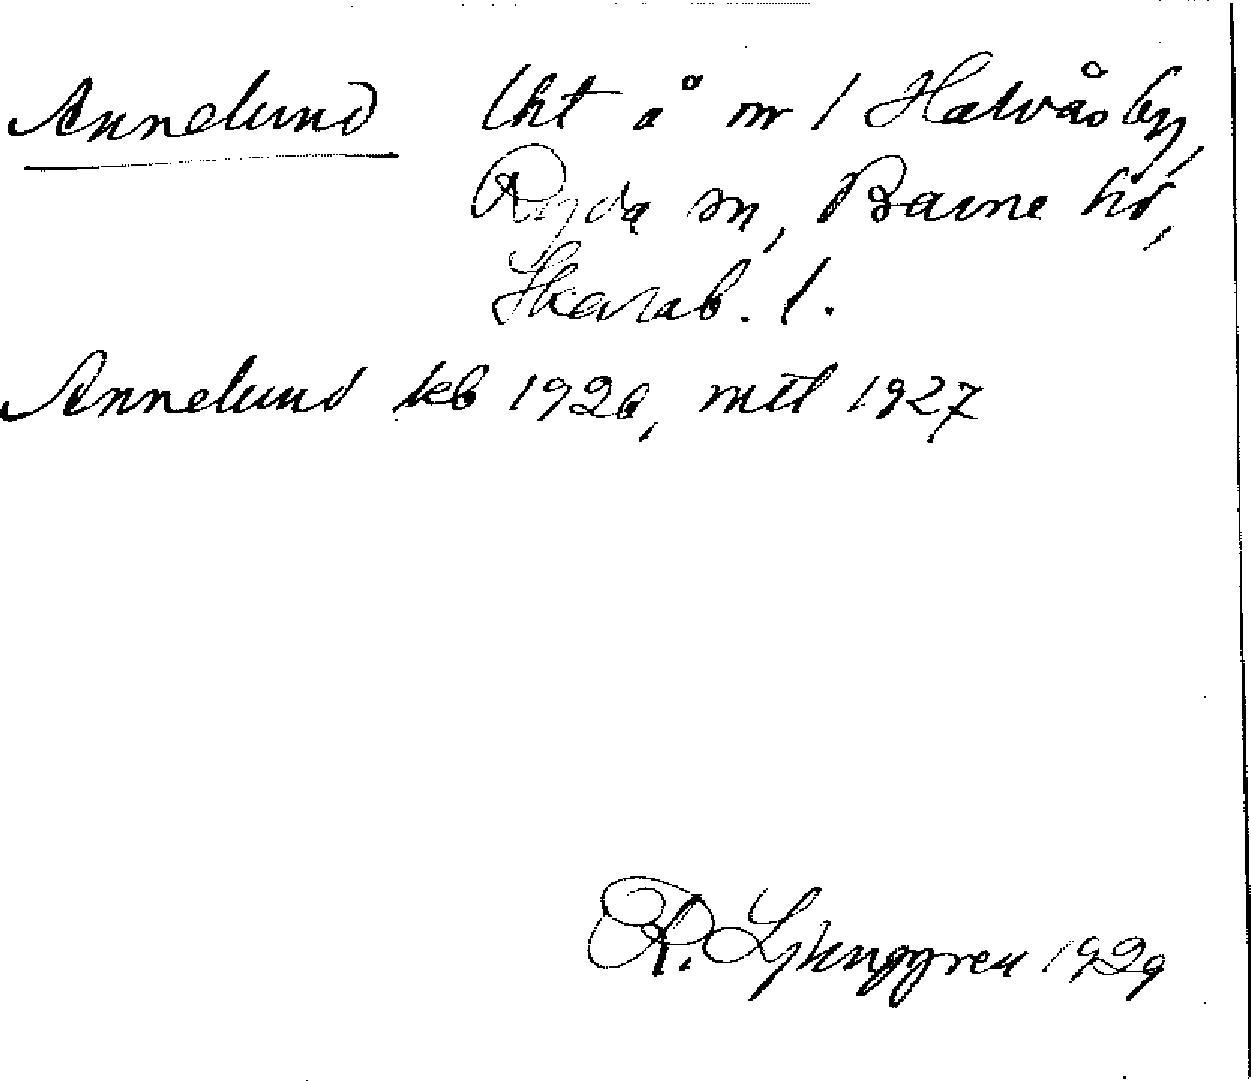 Annelund lht å nr 1 Halvåsby,
Ryda sn, Barne hd,
Skarab. l.
Annelund kb 1926, mtl 1927
R. Ljunggren 1929